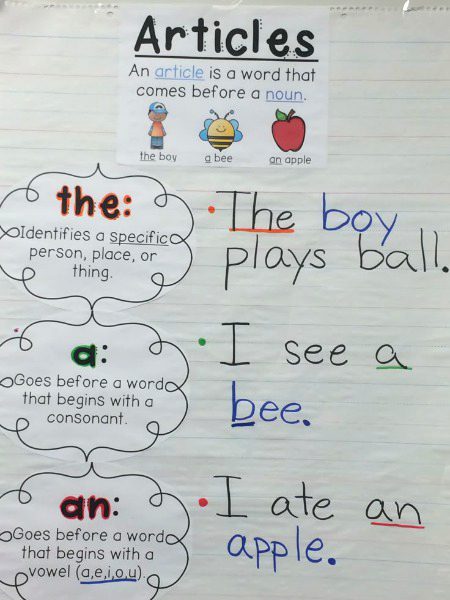 Articles
An article is a word that
comes before a noun.
the boy
a bee
an apple
the:
Identifies a specific
person, place, or
thing.
The boy
plays ball.
a:
Goes before a word
that begins with a
consonant.
I see a
bee.
an:
Goes before a word
that begins with a
vowel (a,e,i,o,u).
I ate an
apple.